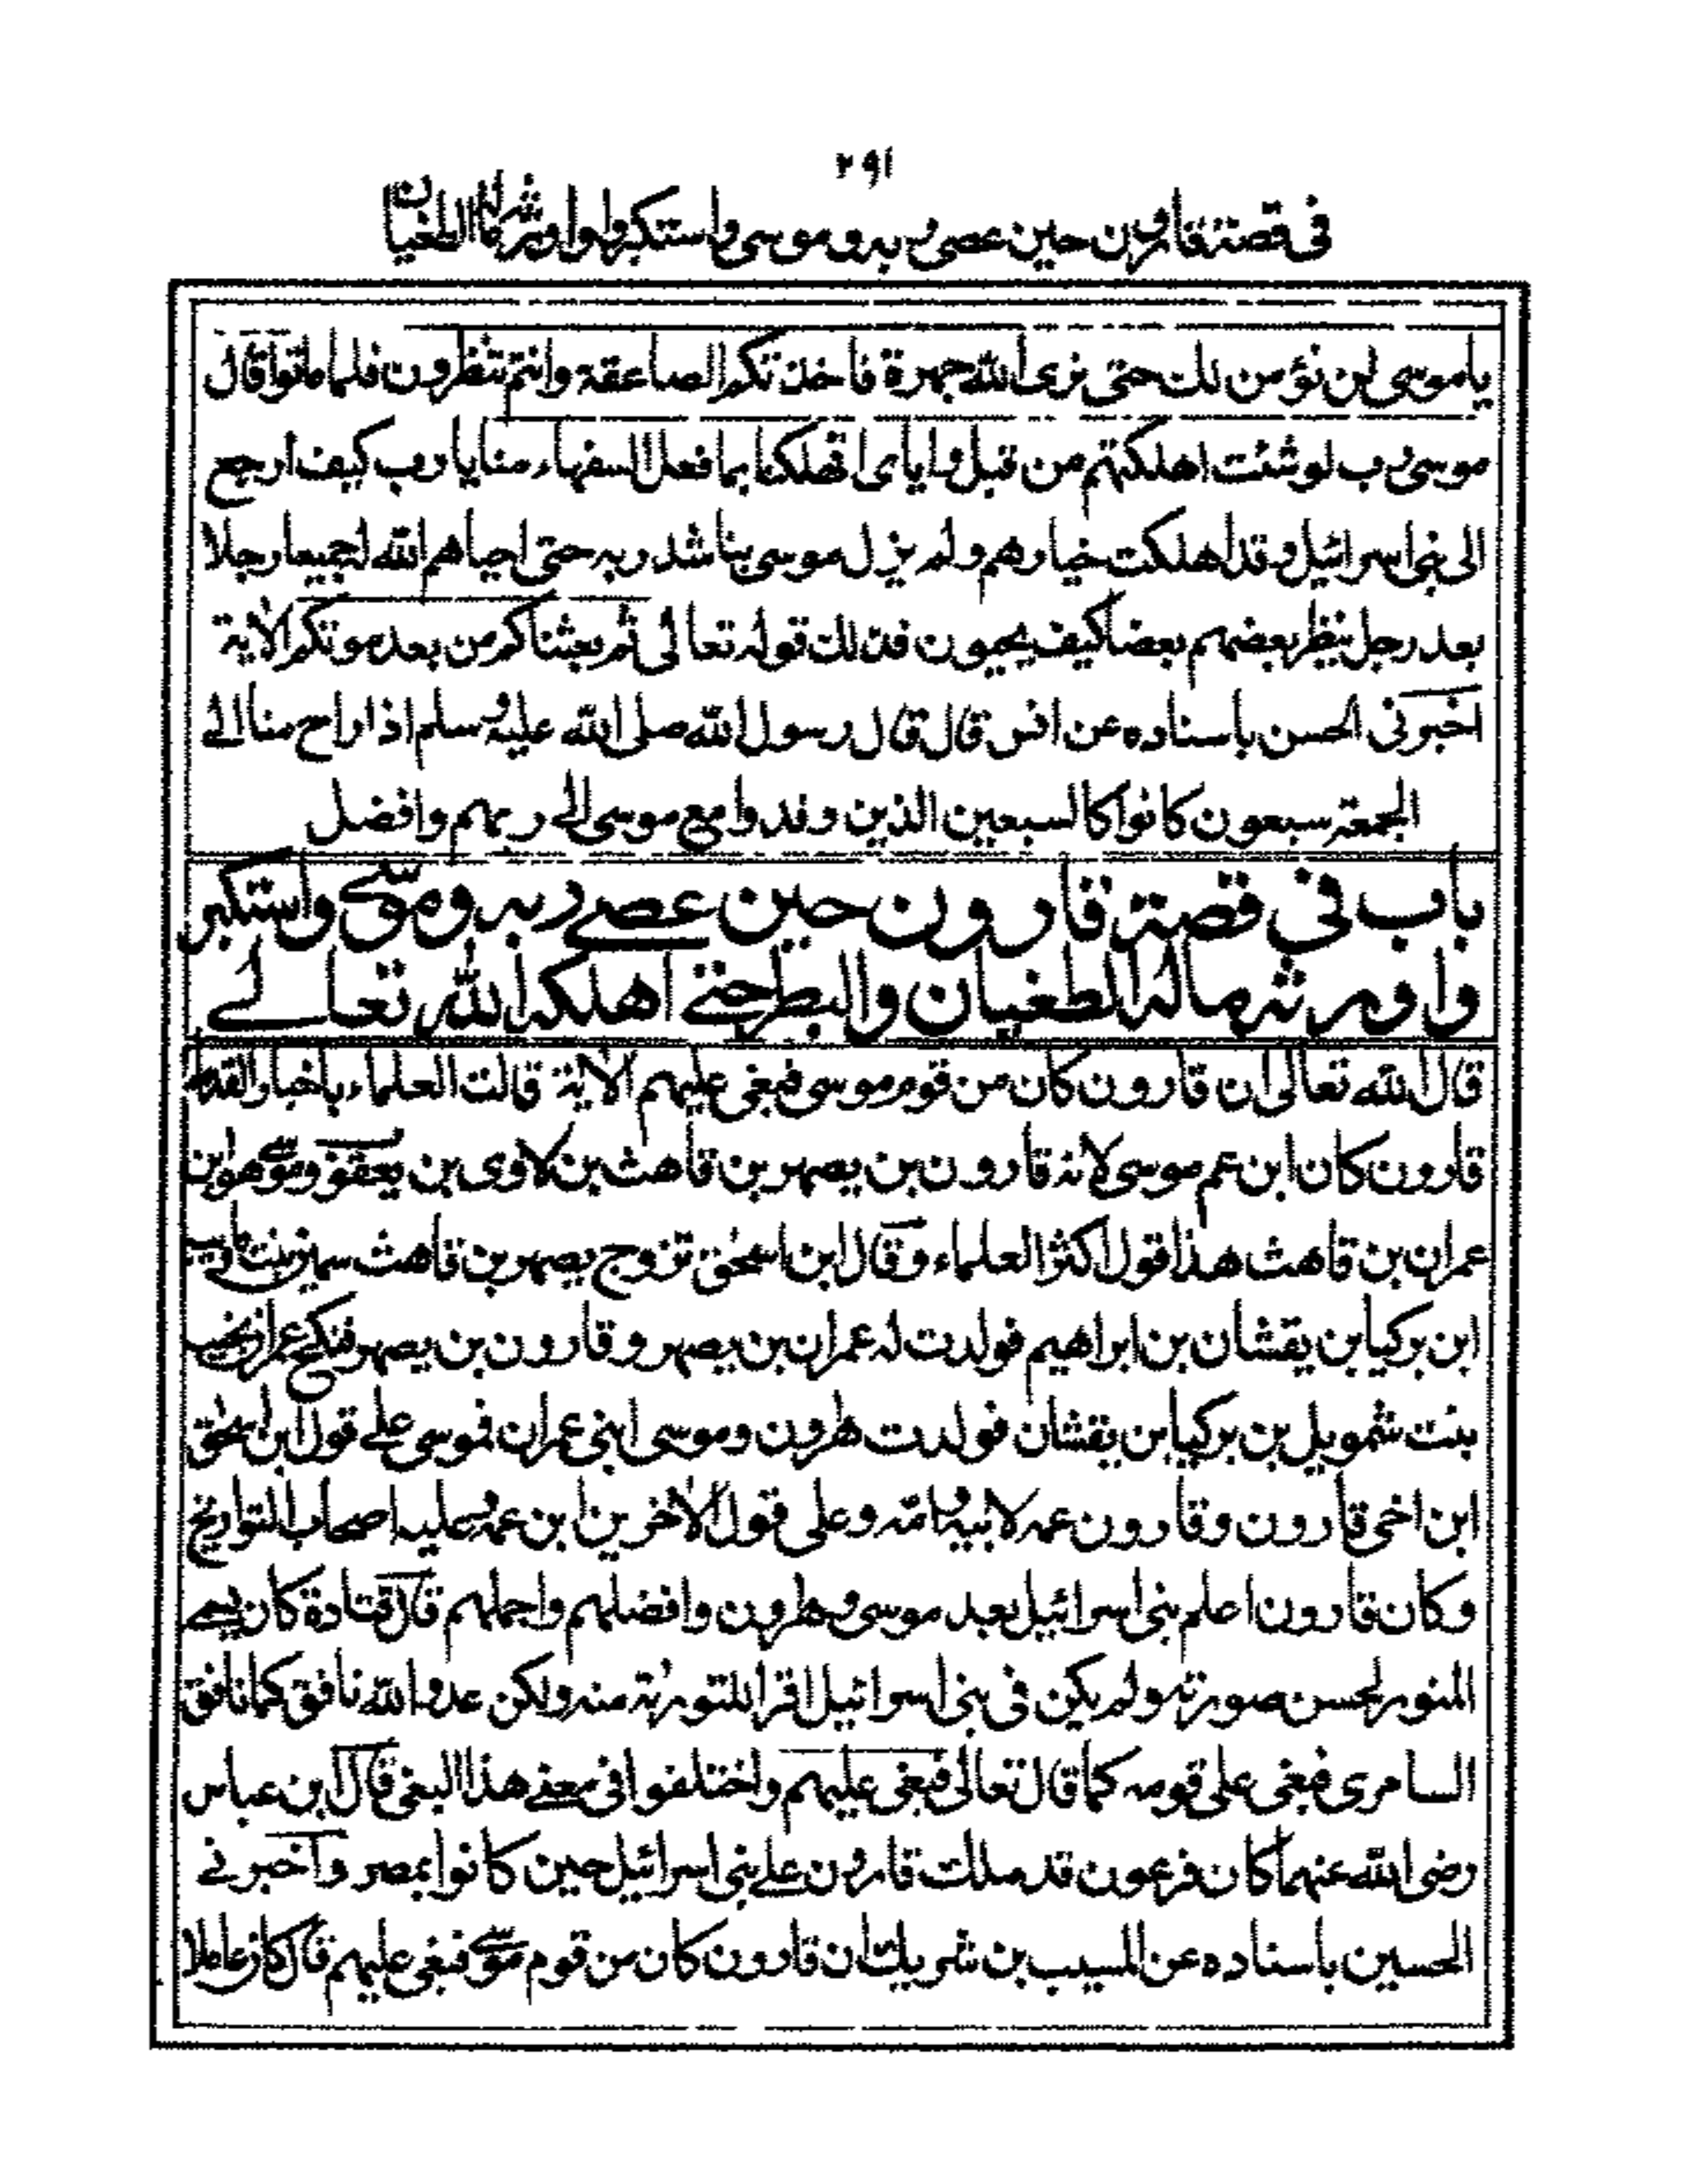 ٢٩١
في قصة قارون حين عصى ربه و موسى واستكبر واورثه ماله الطغيان
ياموسى لن نؤمن لك حتى نرى الله جهرة فاخذتكم الصاعقة وانتم تنظرون فلما ماتوا قال
موسى رب لو شئت اهلكتهم من قبل واياى اتهلكنا بما فعل السفهاء منا يا رب كيف ارجع
الى بنى اسرائيل وقد اهلكت خيارهم ولم يزل موسى يناشد ربه حتى احياهم الله جميعا رجلا
بعد رجل ينظر بعضهم بعضا كيف يحيون فذلك قوله تعالى ثم بعثناكم من بعد موتكم الآية
اخبرنى الحسن باسناده عن انس قال قال رسول الله صلى الله عليه وسلم اذا راح منا الے
الجمعة سبعون كانوا كالسبعين الذين وفدوا مع موسى الے ربهم وافضل
باب في قصة قارون حين عصے ربه وموسے واستكبر
وا ورثه ماله الطغيان والبطر حتے اهلكه الله تعالے
قال الله تعالى ان قارون كان من قوم موسى فبغى عليهم الآية قالت العلماء باخبار القدماء
قارون كان ابن عم موسى لانه قارون بن يصهر بن قاهث بن لاوى بن يعقوب وموسے هو ابن
عمران بن قاهث هذا قول اكثر العلماء وقال ابن اسحٰق تزوج يصهر بن قاهث سمين بنت
ابن بركيا بن يقشان بن ابراهيم فولدت له عمران بن يصهر وقارون بن يصهر فنكح عمران نجيب
بنت شمويل بن بركيا بن يقشان فولدت هٰرون وموسى ابنى عمران فموسى علے قول ابن اسحٰق
ابن اخى قارون وقارون عمه لابيه وامه وعلى قول الآخرين ابن عمه وعليه اصحاب التواريخ
وكان قارون اعلم بنى اسرائيل بعد موسى وهٰرون وافضلهم واجملهم قال قتادة كان يسمے
المنور لحسن صورته ولم يكن فى بنى اسرائيل اقرا للتورٰىة منه ولكن عدو الله نافق كما نافق
السامرى فبغى على قومه كما قال تعالى فبغى عليهم واختلفوا فى معنے هذا البغى قال ابن عباس
رضى الله عنهما كان فرعون قد ملك قارون علے بنى اسرائيل حين كانوا بمصر وآخبرنے
الحسين باسناده عن المسيب بن شريك ان قارون كان من قوم موسے فبغى عليهم قال كان عاملا